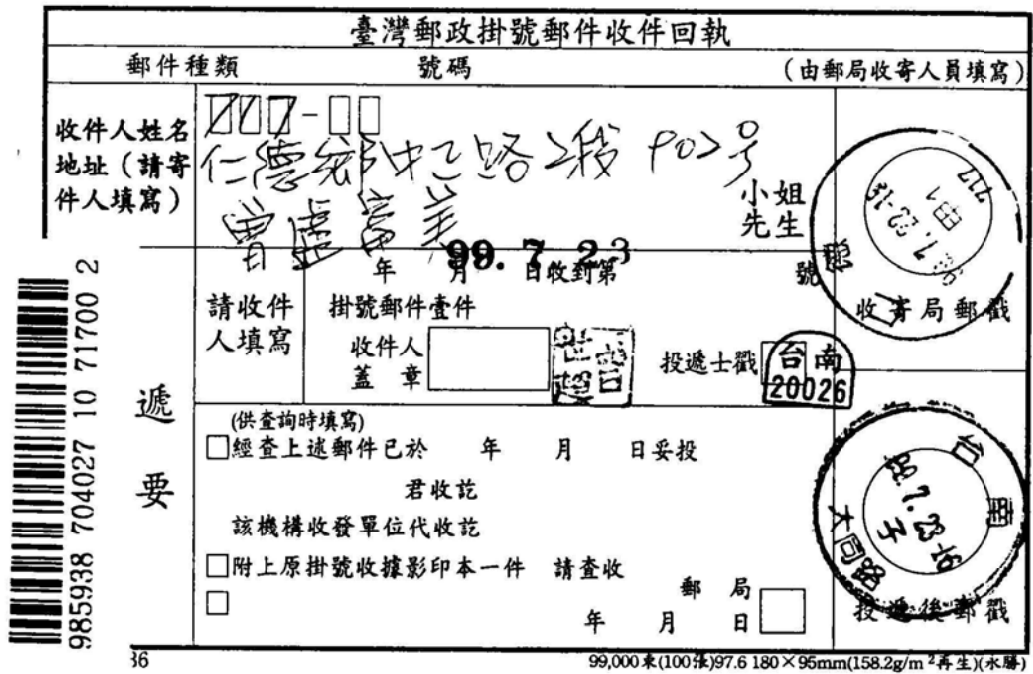 臺灣郵政掛號郵件收件回執
郵件種類 號碼 (由郵局收寄人員填寫)
收件人姓名
地址(請寄
件人填寫)
717-
仁德鄉中正路2段902号
曾盧富美
小姐
先生
99. 7. 23
年 月 日收到第 號
請收件
人填寫
掛號郵件壹件
收件人
蓋章
投遞士戳
台南
20026
收寄局郵戳
717
甲1
99. 7. 23-13
德
遞
要
(供查詢時填寫)
□經查上述郵件已於 年 月 日妥投
君收訖
該機構收發單位代收訖
□附上原掛號收據影印本一件 請查收
□
郵局
年 月 日
台南
99. 7. 23-16
子
大同路
投遞後郵戳
985938 704027 10 71700 2
36
99,000束(100張)97.6 180×95mm(158.2g/m²再生)(永勝)